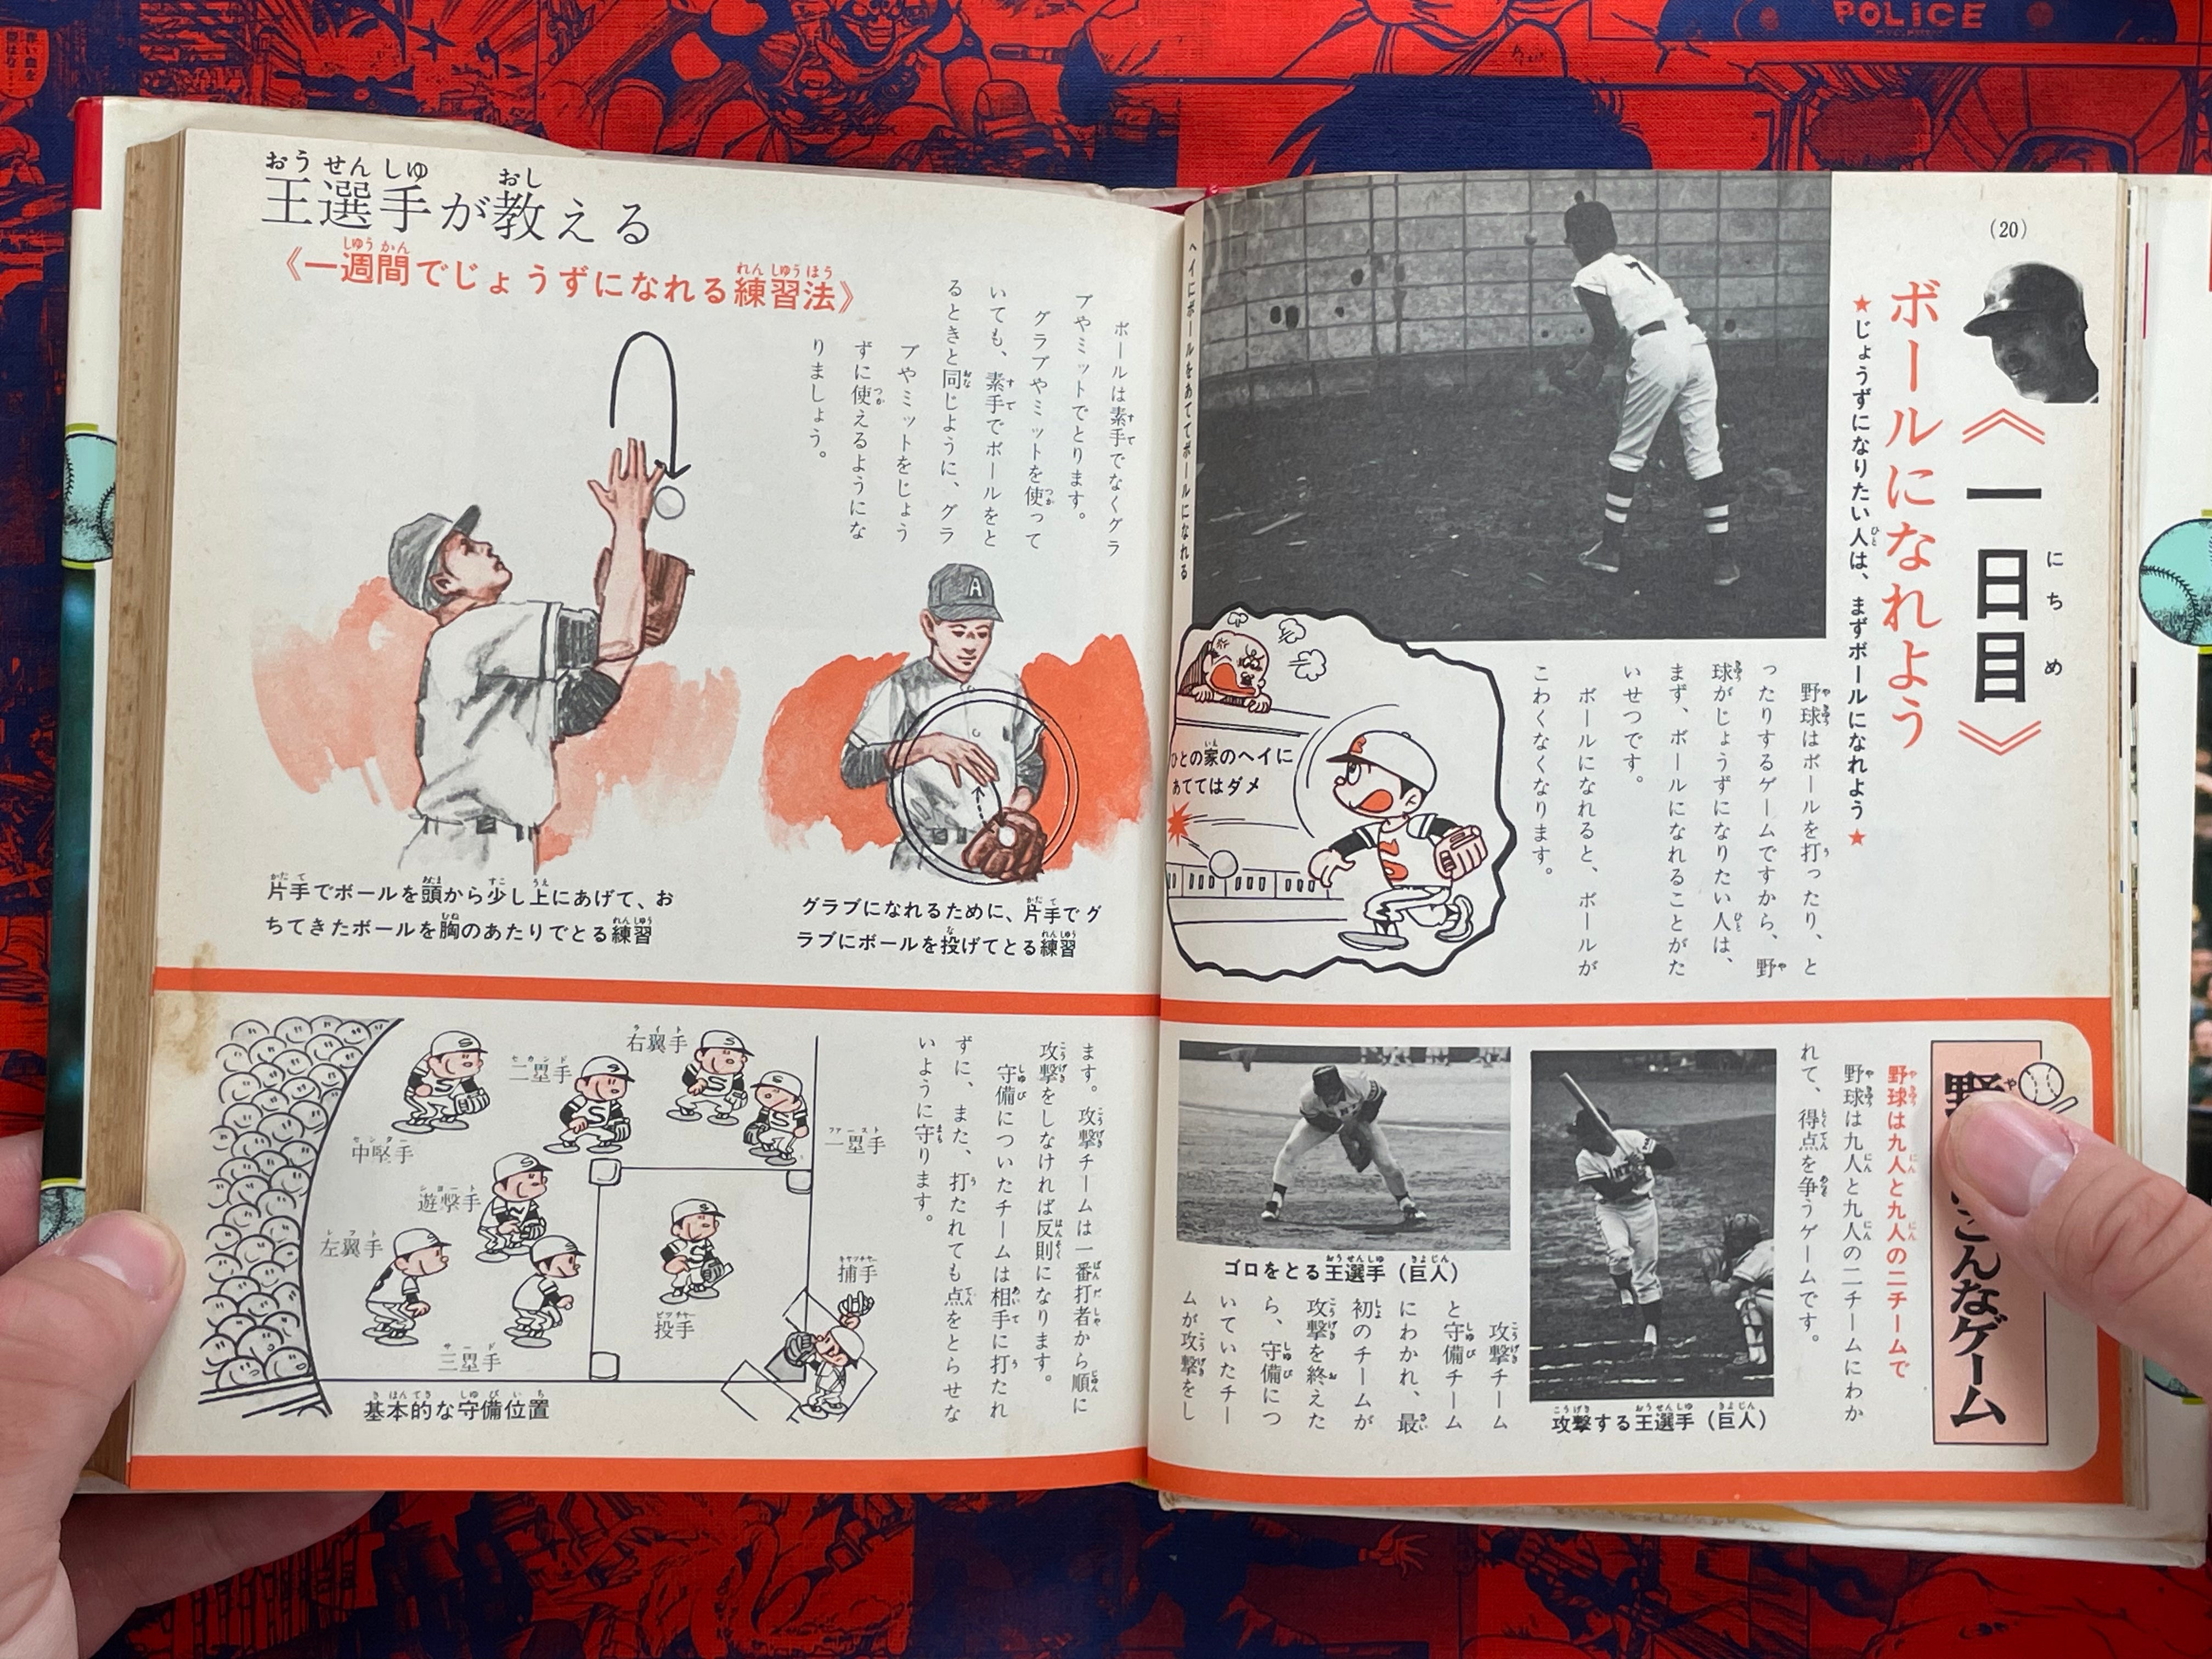 POLICE
(20)
《一日目》
ボールになれよう
★じょうずになりたい人は、まずボールになれよう★
野球はボールを打ったり、と
ったりするゲームですから、野
球がじょうずになりたい人は、
まず、ボールになれることがた
いせつです。
ボールになれると、ボールが
こわくなくなります。
ヘイにボールをあててボールになれる
ひとの家のヘイに
あててはダメ
王選手が教える
《一週間でじょうずになれる練習法》
ボールは素手でなくグラ
ブやミットでとります。
グラブやミットを使って
いても、素手でボールをと
るときと同じように、グラ
ブやミットをじょう
ずに使えるようにな
りましょう。
片手でボールを頭から少し上にあげて、お
ちてきたボールを胸のあたりでとる練習
グラブになれるために、片手でグ
ラブにボールを投げてとる練習
野
こんなゲーム
野球は九人と九人の二チームで
野球は九人と九人の二チームにわか
れて、得点を争うゲームです。
攻撃する王選手（巨人）
ゴロをとる王選手（巨人）
攻撃チーム
と守備チーム
にわかれ、最
初のチームが
攻撃を終えた
ら、守備につ
いていたチー
ムが攻撃をし
ます。攻撃チームは一番打者から順に
攻撃をしなければ反則になります。
守備についたチームは相手に打たれ
ずに、また、打たれても点をとらせな
いように守ります。
右翼手
二塁手
一塁手
中堅手
遊撃手
左翼手
捕手
投手
三塁手
基本的な守備位置